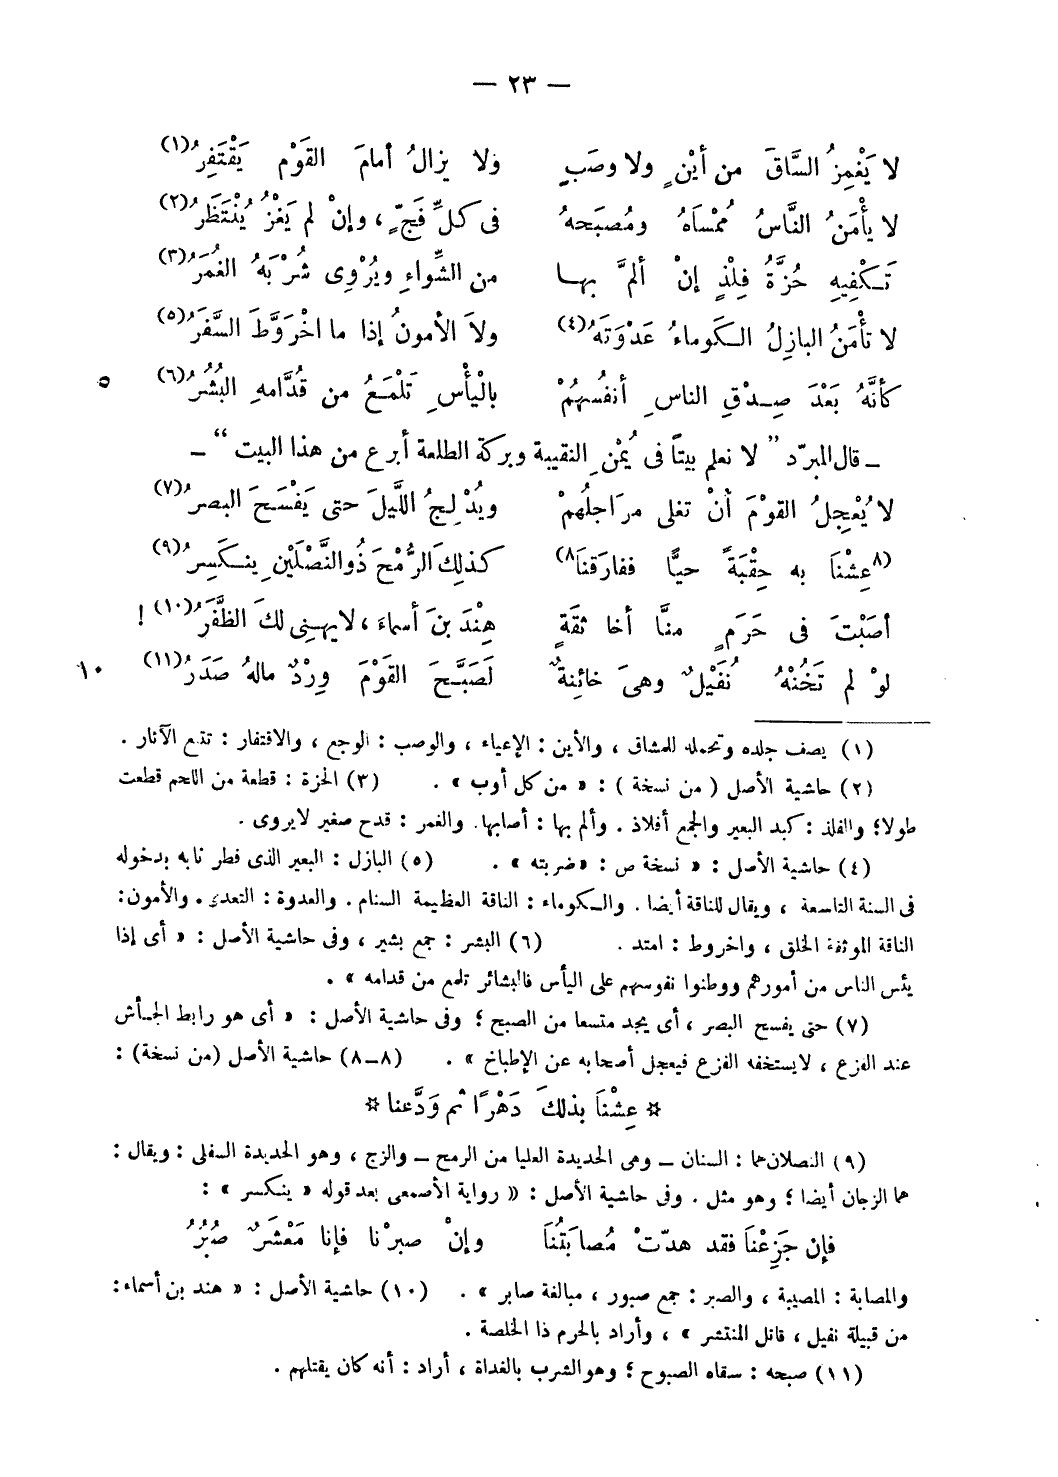 — ٢٣ —
لا يَغْمِزُ السَّاقَ من أيْنٍ ولا وصَبٍ    ولا يزالُ أمامَ القَوْم يَقْتَفِرُ(١)
لا يأْمَنُ النَّاسُ مُمْسَاهُ ومُصبَحهُ    فى كلِّ فَجٍّ ، وإنْ لم يَغْزُ يُنْتَظَرُ(٢)
تَكْفِيهِ حُزَّةُ فِلْذٍ إنْ ألمَّ بها    من الشِّواءِ ويُرْوِى شُرْبَهُ الغُمَرُ(٣)
لا تأْمَنُ البازِلُ الكَوماءُ عَدْوَتَهُ(٤)    ولاَ الأمونُ إذا ما اخْرَوَّطَ السَّفَرُ(٥)
كأنَّهُ بَعْدَ صِدْقِ الناسِ أنفُسهُمْ    بالْيأْسِ تَلْمَعُ من قُدَّامهِ البُشُرُ(٦)    ٥
ــ قال المبرّد ” لا نعلم بيتاً فى يُمْنِ النقيبة وبركة الطلعة أبرع من هذا البيت “ ــ
لا يُعْجِلُ القوْمَ أنْ تغلى مرَاجلُهمْ    ويُدْلِجُ اللَّيلَ حتى يَفْسَحَ البصرُ(٧)
(٨عِشْنَا به حِقْبَةً حيًّا ففارَقنَا٨)    كذلِكَ الرُّمْحَ ذُو النَّصْلَيْنِ ينكَسِرُ(٩)
أصَبْتَ فى حَرَمٍ منَّا أخا ثقَةٍ    هِنْدَ بنَ أسماءَ ، لا يهنِى لكَ الظَّفَرُ(١٠) !
لوْ لم تَخُنْهُ نُفَيْلٌ وهىَ خائِنةٌ    لَصَبَّحَ القَوْمَ وِرْدٌ مالهُ صَدَرُ(١١)    ١٠
(١) يصف جلده وتحمله للمشاق ، والأين : الإعياء ، والوصب : الوجع ، والاقتفار : تتبع الآثار .
(٢) حاشية الأصل ( من نسخة ) : « من كل أوب » . (٣) الحزة : قطعة من اللحم قطعت
طولا؛ والفلذ : كبد البعير والجمع أفلاذ . وألم بها : أصابها. والغمر : قدح صغير لايروى .
(٤) حاشية الأصل : « نسخة ص : «ضربته » . (٥) البازل : البعير الذى فطر نابه بدخوله
فى السنة التاسعة ، ويقال للناقة أيضا . والكوماء : الناقة العظيمة السنام. والعدوة : التعدى . والأمون:
الناقة الموثقة الخلق ، واخروط : امتد . (٦) البشر : جمع بشير ، وفى حاشية الأصل : « أى إذا
يئس الناس من أمورهم ووطنوا نفوسهم على اليأس فالبشائر تلمع من قدامه » .
(٧) حتى يفسح البصر ، أى يجد متسعا من الصبح ؛ وفى حاشية الأصل : « أى هو رابط الجأش
عند الفزع ، لايستخفه الفزع فيعجل أصحابه عن الإطباخ » . (٨-٨) حاشية الأصل (من نسخة) :
* عِشْنَا بذلكَ دَهْرًا ثم وَدَّعنا *
(٩) النصلان هما : السنان ــ وهى الحديدة العليا من الرمح ــ والزج ، وهو الحديدة السفلى : ويقال :
هما الزجان أيضا ؛ وهو مثل . وفى حاشية الأصل : « رواية الأصمعى بعد قوله « ينكسر » :
فإن جَزِعْنَا فقد هدّتْ مُصابَتُنَا    وإنْ صبرْنا فإنا مَعْشَرٌ صُبُرُ
والمصابة : المصيبة ، والصبر : جمع صبور ، مبالغة صابر » . (١٠) حاشية الأصل : « هند بن أسماء:
من قبيلة نفيل ، قاتل المنتشر » ، وأراد بالحرم ذا الخلصة .
(١١) صبحه : سقاه الصبوح ؛ وهو الشرب بالغداة ، أراد : أنه كان يقتلهم .